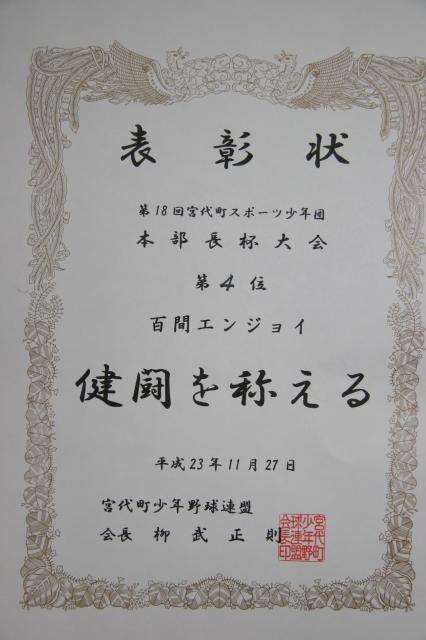 表彰状
第18回宮代町スポーツ少年団
本部長杯大会
第4位
百間エンジョイ
健闘を称える
平成23年11月27日
宮代町少年野球連盟
会長 柳武正則
宮代町
少年野
球連盟
会長印